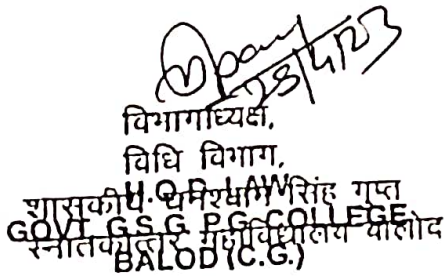 28/4/23
विभागाध्यक्ष,
विधि विभाग,
H.O.D. LAW
शासकीय घनश्याम सिंह गुप्त
GOVT. G.S.G. P.G. COLLEGE
स्नातकोत्तर महाविद्यालय बालोद
BALOD (C.G.)